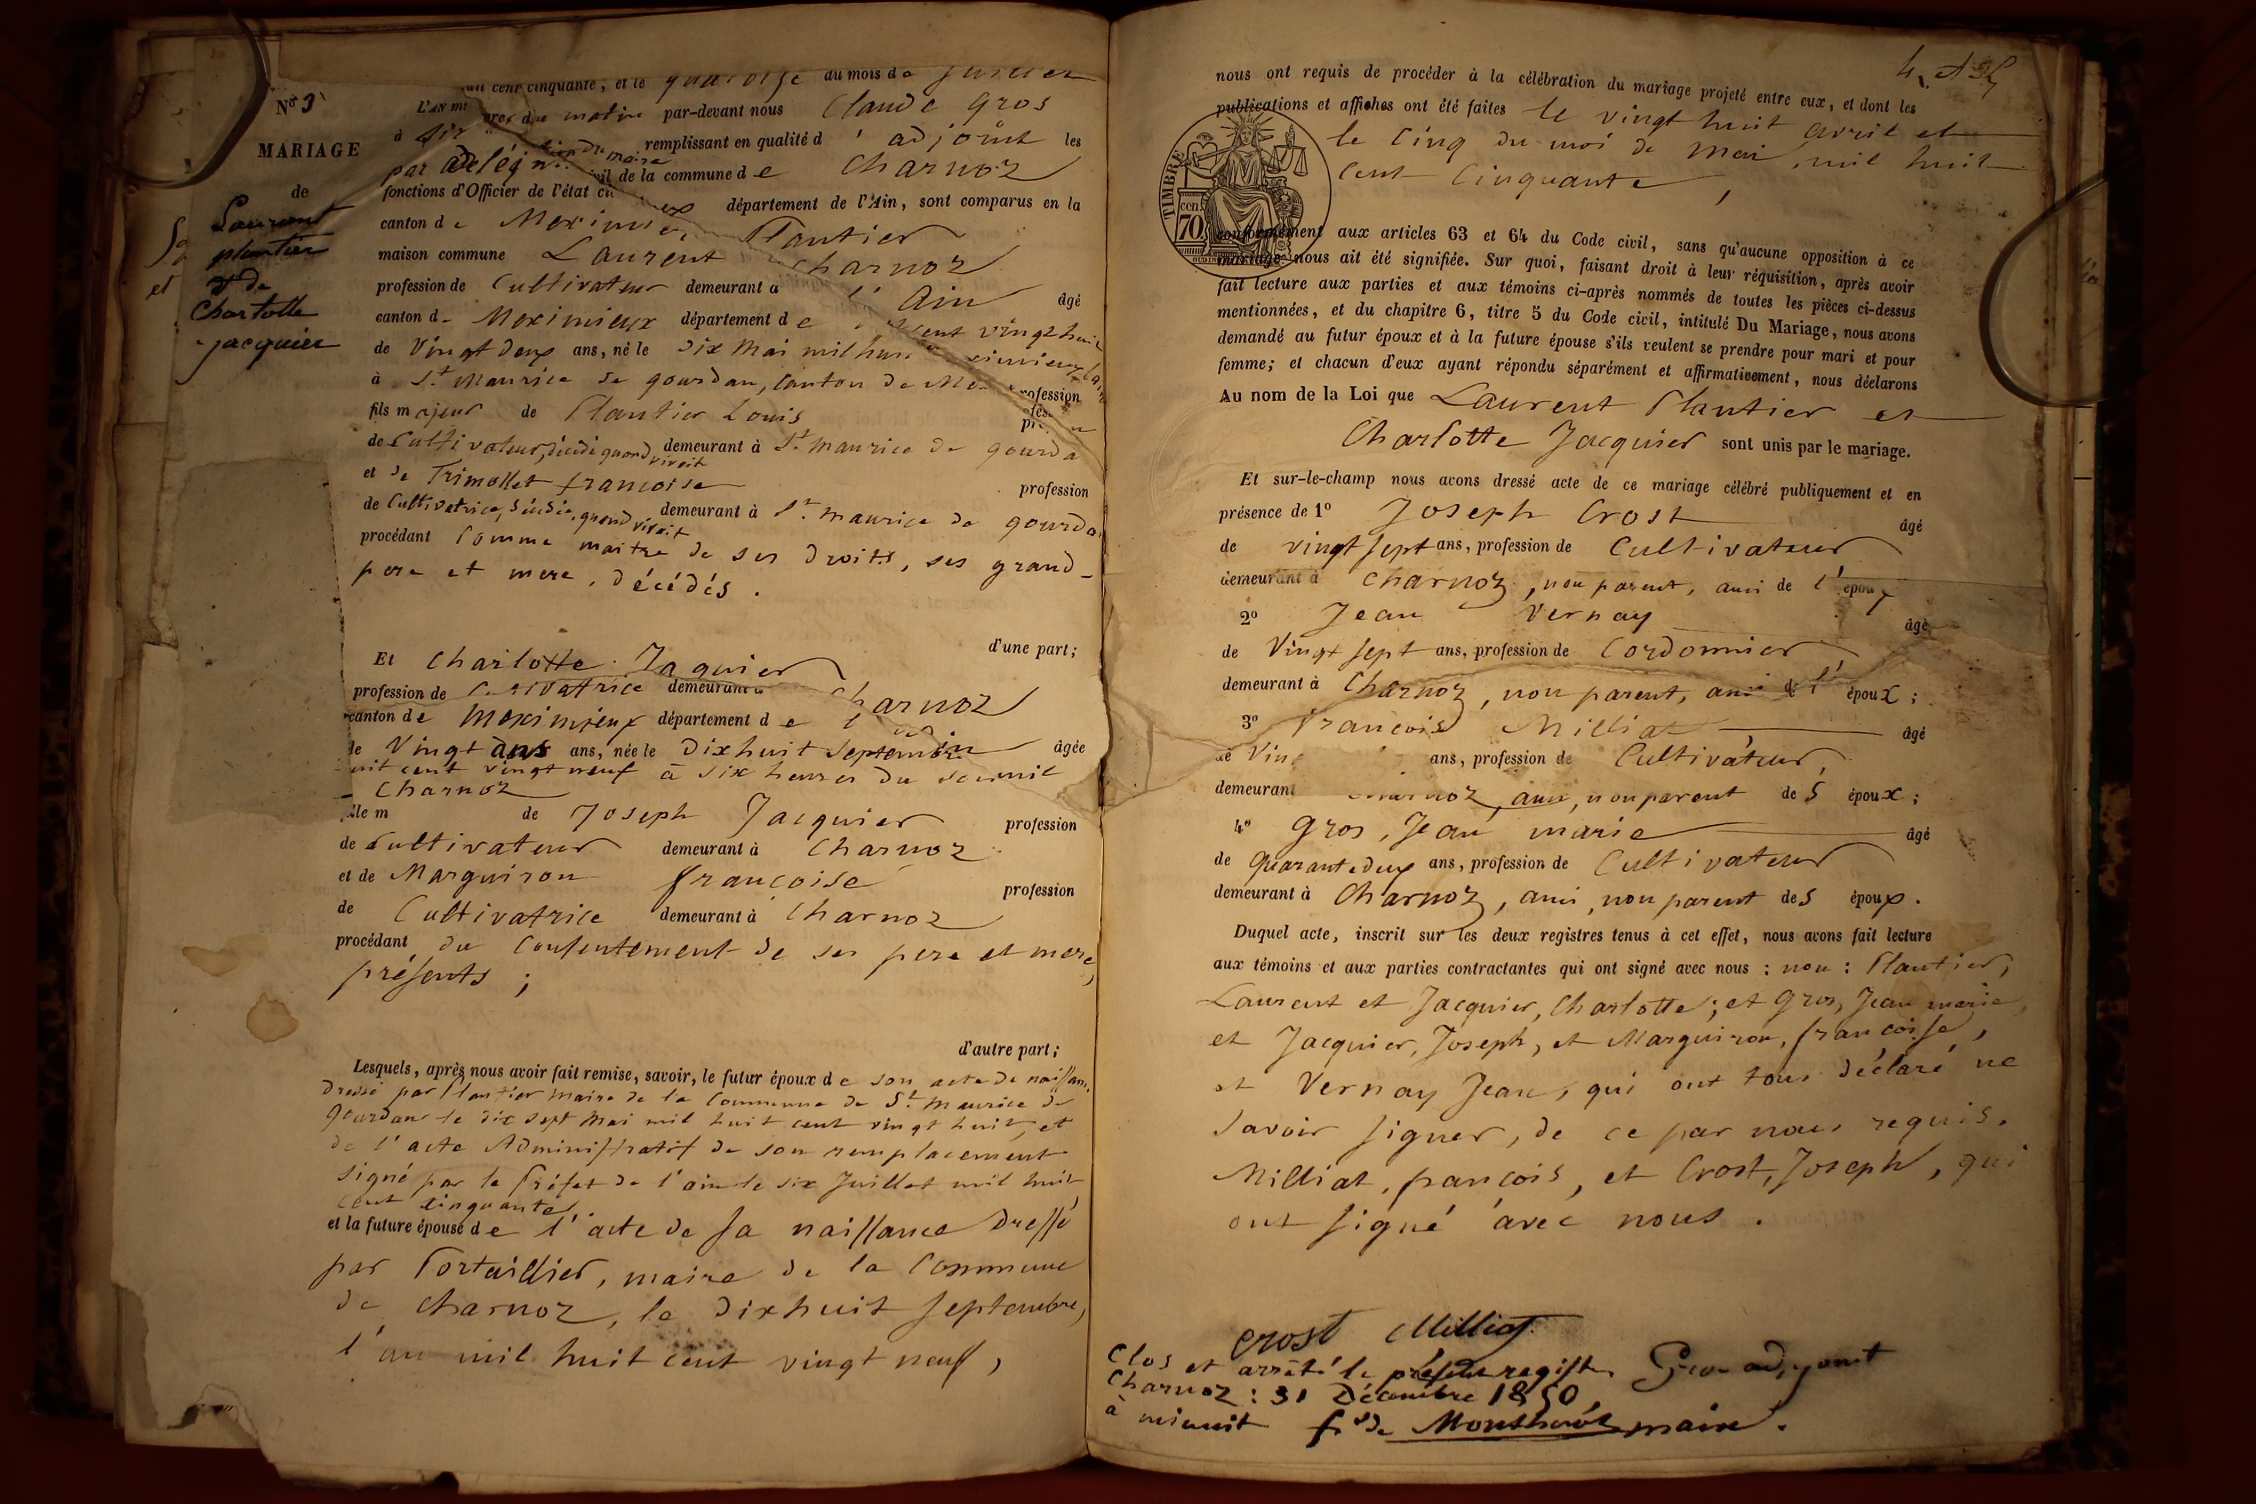 Nº 3
MARIAGE
de
Laurent
plantier
et de
Charlotte
jacquier
cent cinquante, et le quatorze du mois de Juillet
L'AN mi
à dix heures du matin par-devant nous Claude Gros
par délégation du maire remplissant en qualité d'adjoint les
fonctions d'Officier de l'état civil de la commune de Charnoz
canton de Meximieux département de l'Ain, sont comparus en la
maison commune Laurent Plantier
profession de Cultivateur demeurant à Charnoz
canton de Meximieux département de l'Ain âgé
de Vingt deux ans, né le six Mai mil huit cent vingt huit
à St. Maurice de gourdan, Canton de Meximieux
fils majeur de Plantier Louis profession
de Cultivateur, décédé quand vivoit demeurant à St. maurice de gourda
et de Trimollet françoise profession
de Cultivatrice, décédée, quand vivoit demeurant à St. maurice de gourda
procédant Comme maitre de ses droits, ses grand-
pere et mere, décédés.
d'une part;
Et Charlotte Jaquier
profession de Cultivatrice demeurant à Charnoz
canton de Meximieux département de l'ain âgée
de Vingt ans ans, née le Dixhuit Septembre
huit cent vingt neuf à six heures du soir mil
Charnoz
fille m de Joseph Jacquier profession
de Cultivateur demeurant à Charnoz
et de Marguiron françoise profession
de Cultivatrice demeurant à Charnoz
procédant du Consentement de ses pere et mere,
présents ;
d'autre part;
Lesquels, après nous avoir fait remise, savoir, le futur époux de son acte de naissan.
Dressé par Plantier maire de la Commune de St. Maurice de
Gourdans le dix sept Mai mil huit cent vingt huit, et
de l'acte Administratif de son remplacement
signé par le Préfet de l'ain le six Juillet mil huit
cent cinquante,
et la future épouse de l'acte de sa naissance Dressé
par Portaillier, maire de la Commune
de Charnoz, le dixhuit septembre,
l'an mil huit cent vingt neuf,
nous ont requis de procéder à la célébration du mariage projeté entre eux, et dont les
publications et affiches ont été faites le vingt huit avril et
le cinq du moi de Mai, mil huit
cent cinquante,
TIMBRE
cen.
70
conformément aux articles 63 et 64 du Code civil, sans qu'aucune opposition à ce
mariage nous ait été signifiée. Sur quoi, faisant droit à leur réquisition, après avoir
fait lecture aux parties et aux témoins ci-après nommés de toutes les pièces ci-dessus
mentionnées, et du chapitre 6, titre 5 du Code civil, intitulé Du Mariage, nous avons
demandé au futur époux et à la future épouse s'ils veulent se prendre pour mari et pour
femme; et chacun d'eux ayant répondu séparément et affirmativement, nous déclarons
Au nom de la Loi que Laurent Plantier et
Charlotte Jacquier sont unis par le mariage.
Et sur-le-champ nous avons dressé acte de ce mariage célébré publiquement et en
présence de 1º Joseph Crost âgé
de vingt sept ans, profession de Cultivateur
demeurant à Charnoz, non parent, ami de l'époux
2º Jean Vernay âgé
de Vingt sept ans, profession de Cordonnier
demeurant à Charnoz, non parent, ami de l' époux;
3º François Milliat âgé
de Ving ans, profession de Cultivateur,
demeurant Charnoz, ami, non parent des époux;
4º Gros, Jean marie âgé
de Quarante deux ans, profession de Cultivateur
demeurant à Charnoz, ami, non parent des époux.
Duquel acte, inscrit sur les deux registres tenus à cet effet, nous avons fait lecture
aux témoins et aux parties contractantes qui ont signé avec nous : non : Plantier,
Laurent et Jacquier, Charlotte; et Gros, Jean marie,
et Jacquier, Joseph, et Marguiron, françoise,
et Vernay Jean, qui ont tous déclaré ne
savoir signer, de ce par nous requis.
Milliat, françois, et Crost, Joseph, qui
ont signé avec nous.
Crost Milliat
Gros adjoint
Clos et arrêté le présent regist.
Charnoz : 31 Décembre 1850,
à minuit
maire.